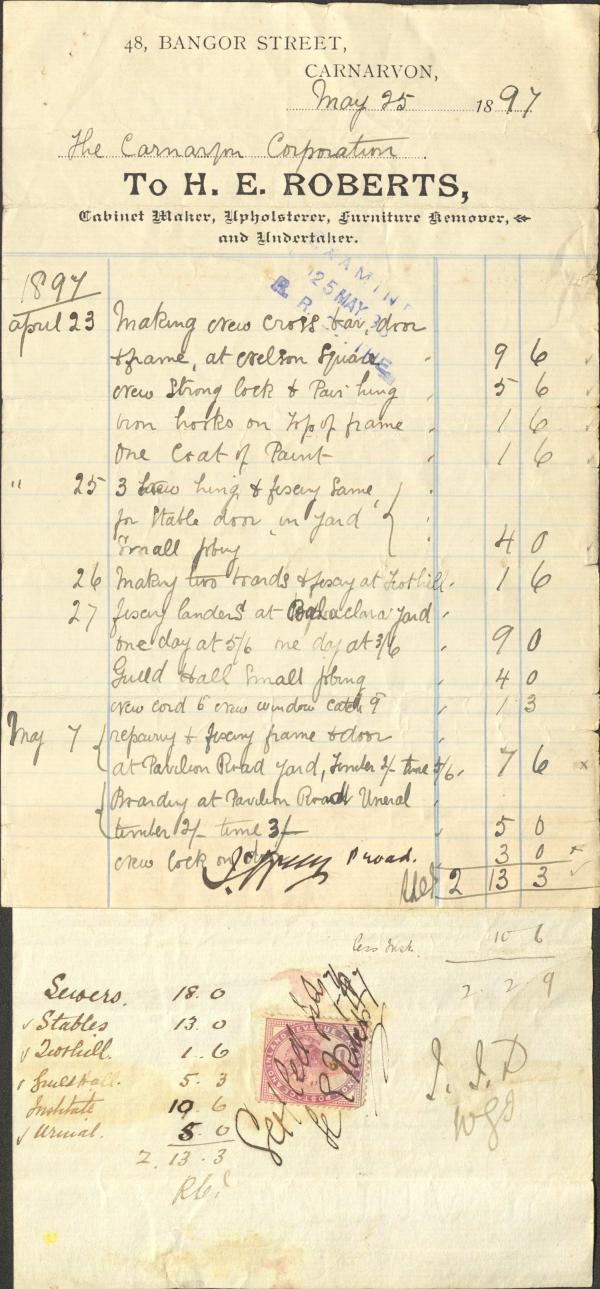 48, BANGOR STREET,
CARNARVON,
May 25 1897
The Carnarvon Corporation
To H. E. ROBERTS,
Cabinet Maker, Upholsterer, Furniture Remover,
and Undertaker.
EXAMINE
25 MAY
1897
April 23 Making new cross bar, door
& frame, at Nelson Square 9 6
new Strong lock & Pair hing 5 6
iron hooks on Top of frame 1 6
One Coat of Paint 1 6
" 25 3 new hing & fixing Same
for Stable door in Yard
Small jobing 4 0
26 Making two boards & fixing at Twthill 1 6
27 fixing landers at Balaclava Yard
one day at 5/6 one day at 3/6 9 0
Guild Hall Small jobing 4 0
new cord 6 new window catch 9 1 3
May 7 repairing & fixing frame & door
at Pavilion Road Yard, timber 2/- time 5/6 7 6
Boarding at Pavilion Road Urneral
timber 2/- time 3/- 5 0
new lock on door P road. 3 0
2 13 3
less Inst. 10 6
2 2 9
Sewers. 18 . 0
Stables 13 . 0
Twthill. 1 . 6
Guild Hall. 5 . 3
Institute 10 6
Urinal. 5 . 0
2. 13 . 3
POSTAGE AND INLAND REVENUE
Settled